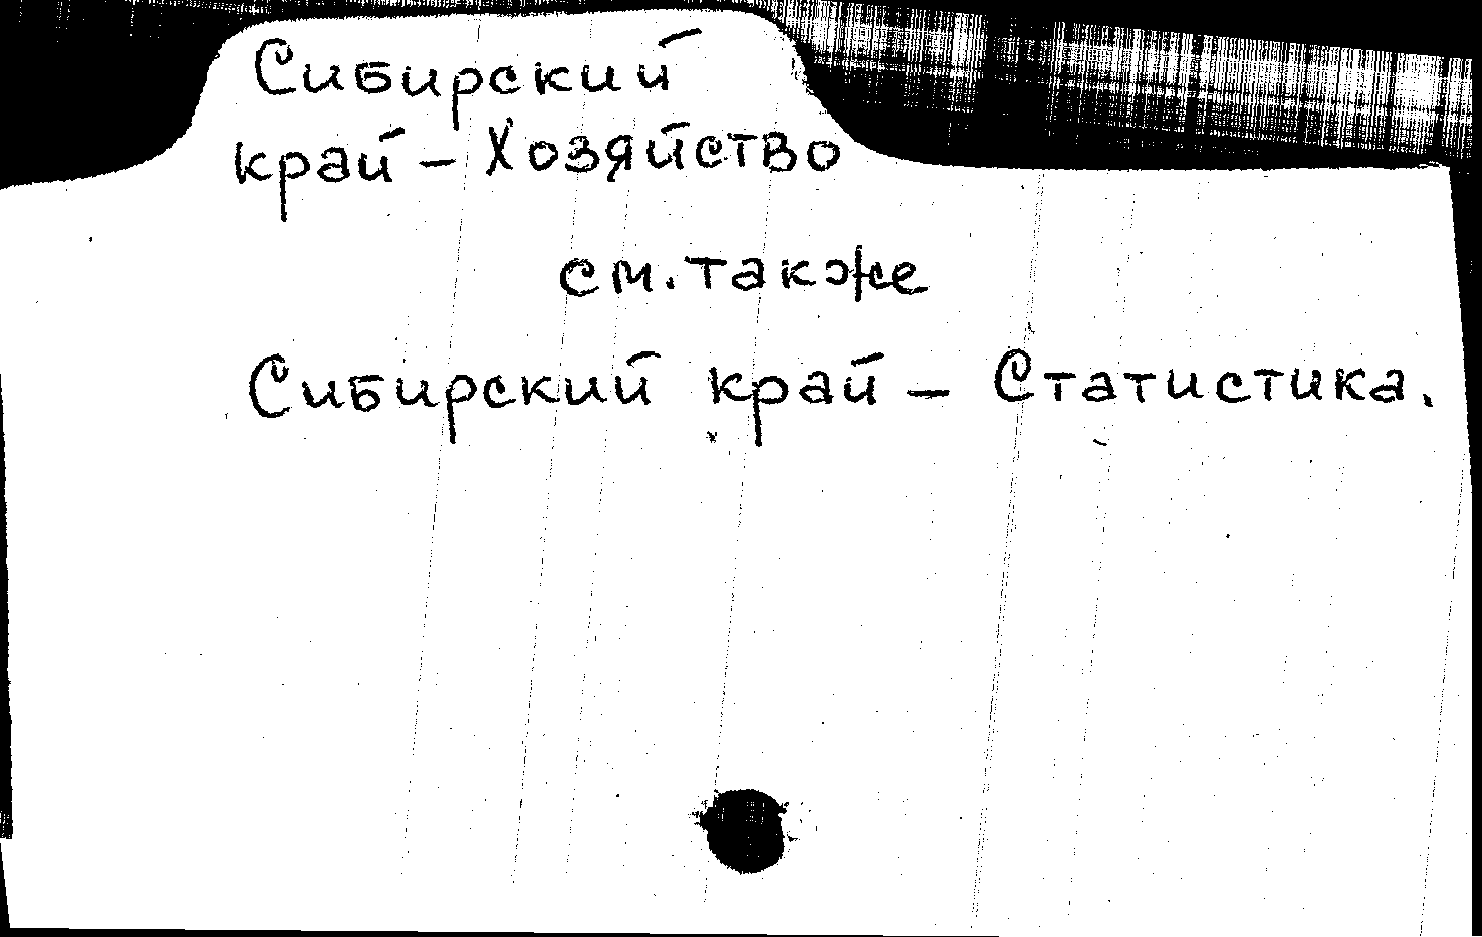 Сибирский
край – Хозяйство
см. также
Сибирский край – Статистика.